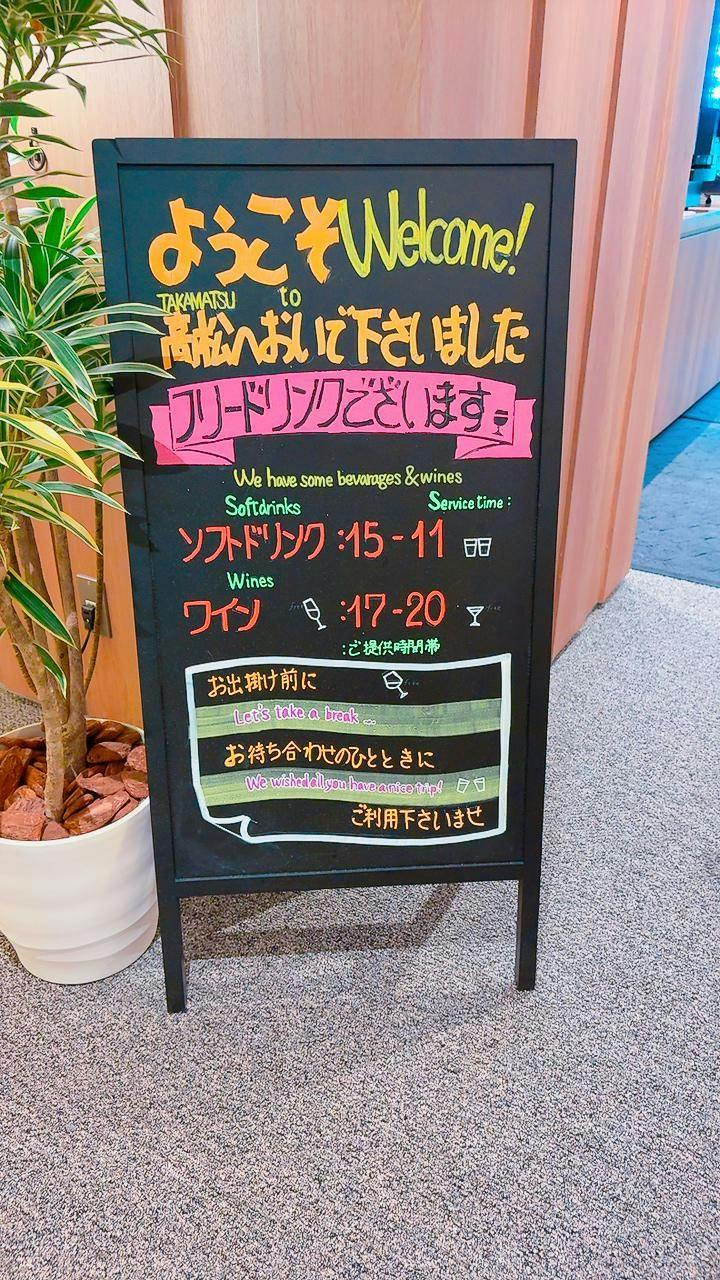 ようこそ Welcome!
TAKAMATSU to
高松へおいで下さいました
フリードリンクございます
We have some bevarages & wines
Softdrinks Service time:
ソフトドリンク:15-11
Wines
ワイン free :17-20 free
:ご提供時間帯
お出掛け前に free
Let's take a break...
お待ち合わせのひとときに
We wished all you have a nice trip!
ご利用下さいませ